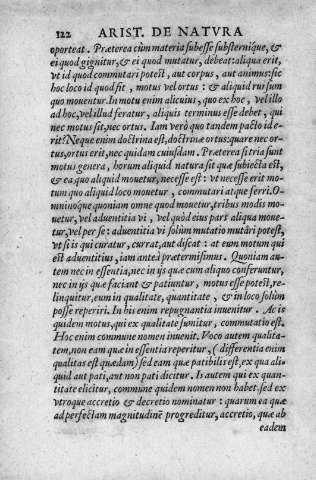 122 ARIST. DE NATVRA
oporteat. Præterea cùm materia subesse substerniq́ue, &
ei quod gignitur, & ei quod mutatur, debeat: aliqua erit,
vt id quod commutari potest, aut corpus, aut animus: sic
hoc loco id quod fit, motus vel ortus: & aliquid rursum
quo mouentur. In motu enim alicuius, quo ex hoc, vel illo
ad hoc, vel illud feratur, aliquis terminus esse debet, qui
nec motus sit, nec ortus. Iam verò quo tandem pacto id e-
rit? Neque enim doctrina est, doctrinæ ortus: quare nec or-
tus, ortus erit, nec quidam cuiusdam. Præterea si tria sunt
motus genera, horum aliquid natura sit quæ subiecta est,
& ea quo aliquid mouetur, necesse est: vt necesse erit mo-
tum quo aliquid loco mouetur, commutari atque ferri. O-
mninoque quoniam omne quod mouetur, tribus modis mo-
uetur, vel aduentitia vi, vel quòd eius pars aliqua moue-
tur, vel per se: aduentitia vi solùm mutatio mutari potest,
vt si is qui curatur, currat, aut discat: at eum motum qui
est aduentitius, iam anteà prætermisimus. Quoniam au-
tem nec in essentia, nec in ijs quæ cum aliquo conferuntur,
nec in ijs quæ faciant & patiuntur, motus esse potest, re-
linquitur, eum in qualitate, quantitate, & in loco solùm
posse reperiri. In his enim repugnantia inuenitur. Ac is
quidem motus, qui ex qualitate sumitur, commutatio est.
Hoc enim commune nomen inuenit. Voco autem qualita-
tem, non eam quæ in essentia reperitur, (differentia enim
qualitas est quædam) sed eam quæ patibilis est, ex qua ali-
quid aut pati, aut non pati dicitur. Is autem qui ex quan-
titate elicitur, commune quidem nomen non habet sed ex
vtroque accretio & decretio nominatur: quarum ea quæ
ad perfectam magnitudinē progreditur, accretio, quæ ab
eadem